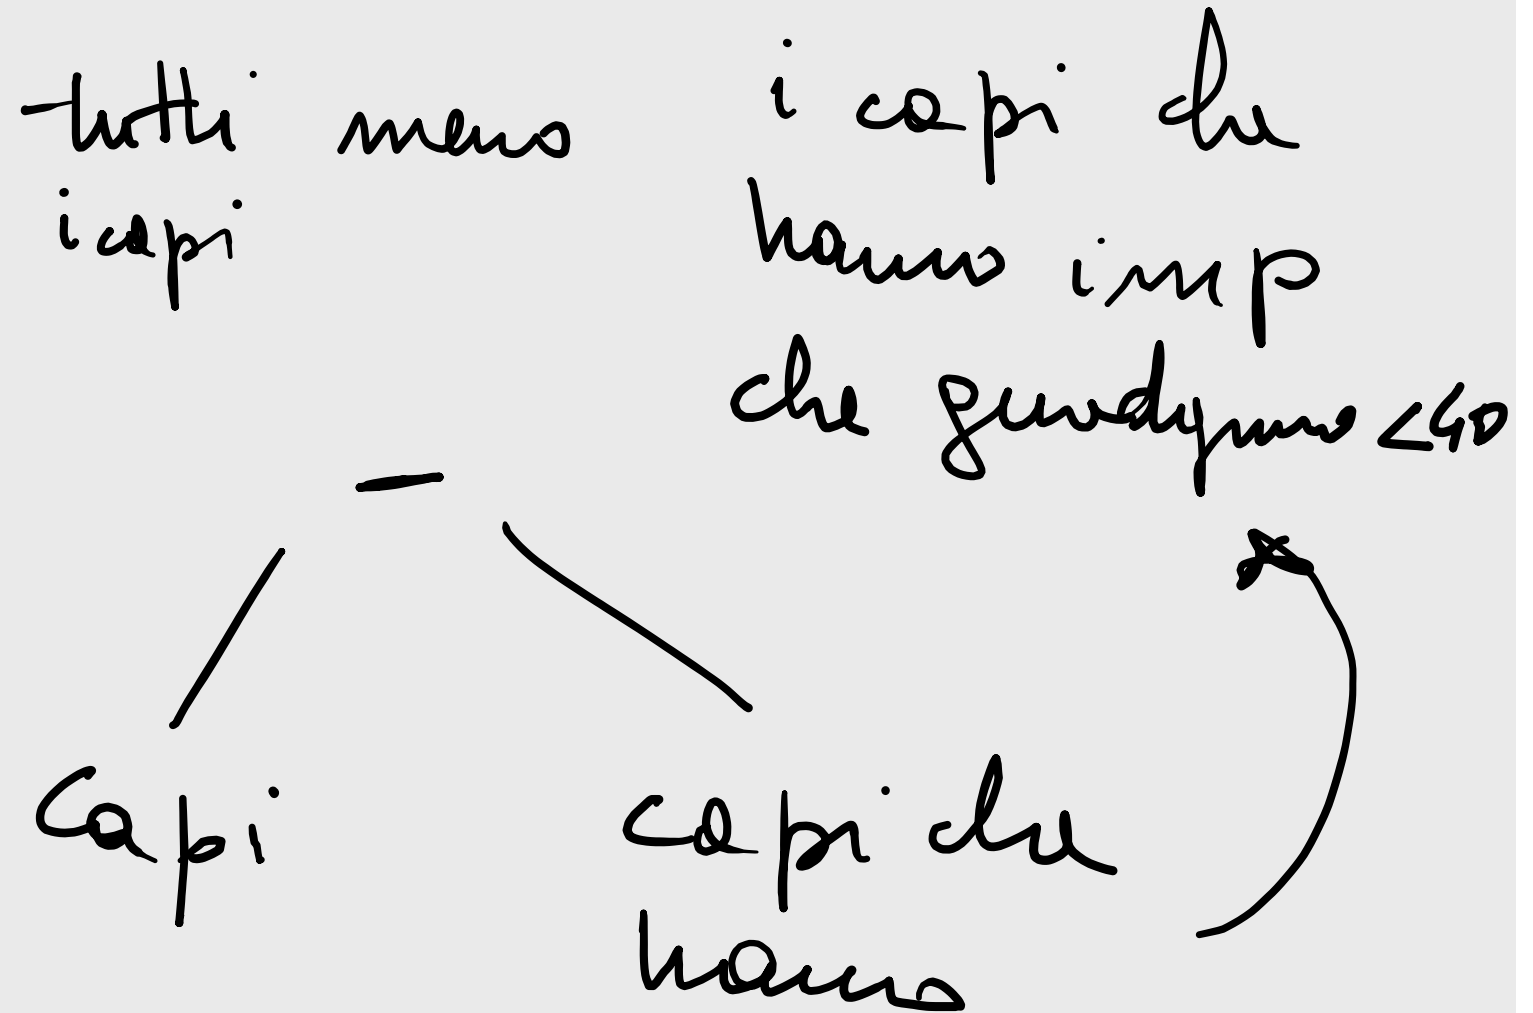 tutti meno
i capi
i capi che
hanno imp
che guadagnano <40
—
Capi
capi che
hanno